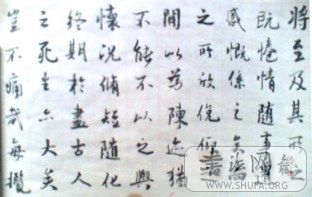 將至及其所之
既惓情随事
感慨係之矣
之所欣俛仰
間以為陳迹猶
不能不以之興
懷況脩短随化
終期於盡古人
云死生亦大矣
豈不痛哉每攬
WWW.SHUFA.ORG